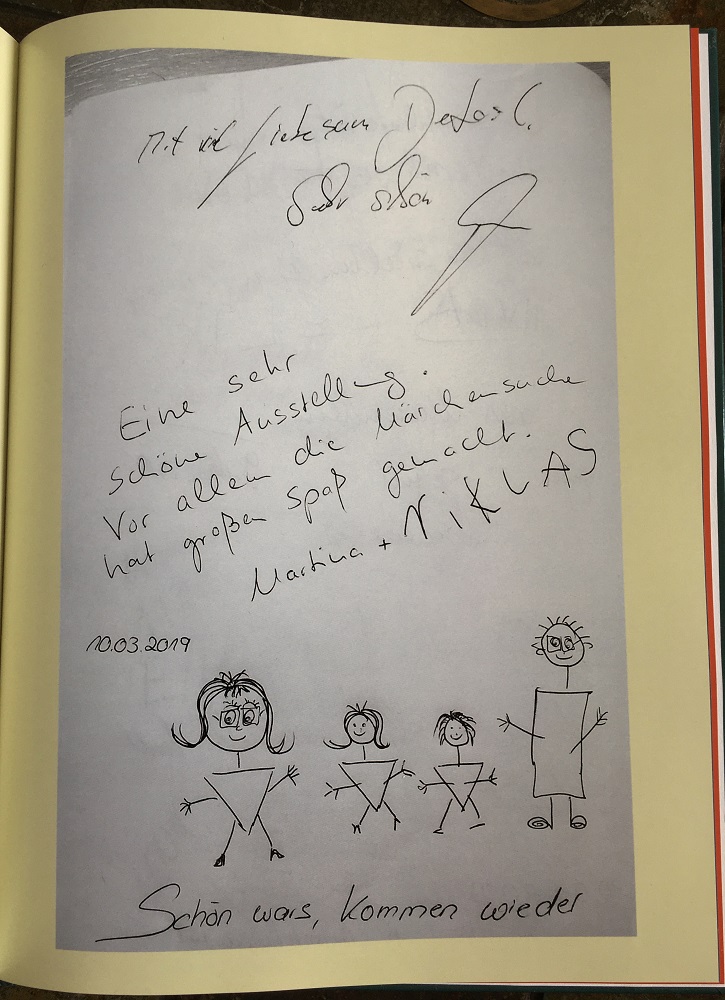 Mit viel liebe zum Detail.
Sehr schön
Eine sehr
schöne Ausstellung.
Vor allem die Märchensuche
hat großen Spaß gemacht.
Martina + NiKLAS
10.03.2019
Schön wars, kommen wieder